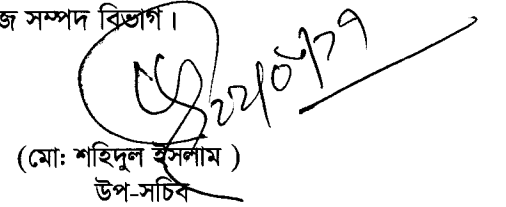 জ সম্পদ বিভাগ।
(মো: শহিদুল ইসলাম )
উপ-সচিব